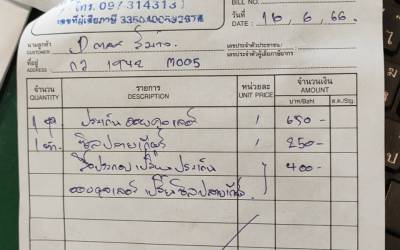 โทร. 09/314313
เลขที่ผู้เสียภาษี
BILL NO.
วันที่ DATE 16, 6, 66.
นามลูกค้า CUSTOMER
ที่อยู่ ADDRESS กว 1942 M005
เลขประจำตัวประชาชน
เลขประจำตัวผู้เสียภาษีอากร
จำนวน QUANTITY รายการ DESCRIPTION หน่วยละ UNIT PRICE จำนวนเงิน AMOUNT
บาท/Baht ส.ต./Stg.
1 ชุด ประเก็น ออยคูลเลอร์ 650-
1 ตัว ซีลปลายเกียร์ 250-
ประกอบเปลี่ยน ประเก็น 400-
ออยคูลเลอร์ เปลี่ยนซีลปลายเกียร์